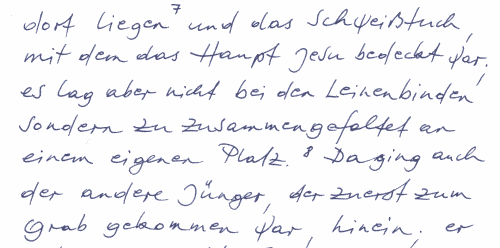 dort liegen ⁷ und das Schweißtuch,
mit dem das Haupt Jesu bedeckt war;
es lag aber nicht bei den Leinenbinden,
sondern zu zusammengefaltet an
einem eigenen Platz. ⁸ Da ging auch
der andere Jünger, der zuerst zum
Grab gekommen war, hinein; er